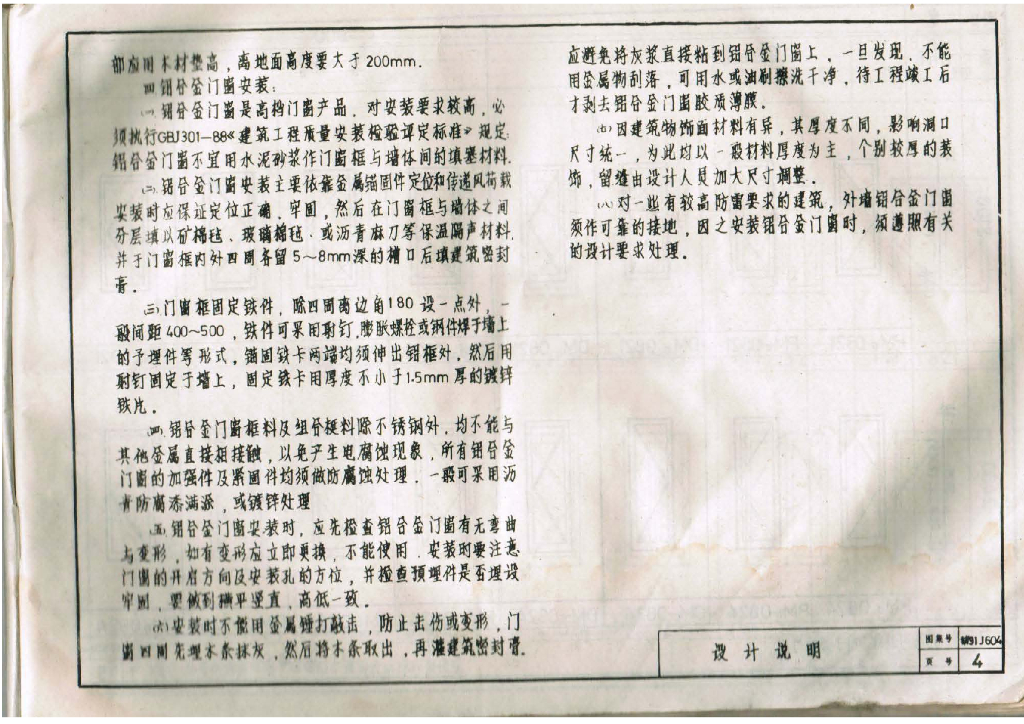 部应用木材垫高，离地面高度要大于200mm.
四 铝合金门窗安装：
㈠ 铝合金门窗是高档门窗产品，对安装要求较高，必
须执行GBJ301-88《建筑工程质量安装检验评定标准》规定:
铝合金门窗不宜用水泥砂浆作门窗框与墙体间的填塞材料.
㈡ 铝合金门窗安装主要依靠金属锚固件定位和传递风荷载
安装时应保证定位正确，牢固，然后在门窗框与墙体之间
分层填以矿棉毡、玻璃棉毡．或沥青麻刀等保温隔声材料.
并于门窗框内外四周各留5～8mm深的槽口后填建筑密封
膏。
㈢门窗框固定铁件，除四周离边角180设一点外，一
般间距400～500，铁件可采用射钉.膨胀螺栓或钢件焊于墙上
的予埋件等形式，锚固铁卡两端均须伸出铝框外，然后用
射钉固定于墙上，固定铁卡用厚度不小于1.5mm厚的镀锌
铁片。
㈣．铝合金门窗框料及组合梃料除不锈钢外，均不能与
其他金属直接相接触，以免产生电腐蚀现象，所有铝合金
门窗的加强件及紧固件均须做防腐蚀处理．一般可采用沥
青防腐漆满涂，或镀锌处理
㈤铝合金门窗安装时，应先检查铝合金门窗有无弯曲
与变形，如有变形应立即更换，不能使用．安装时要注意
门窗的开启方向及安装孔的方位，并检查预埋件是否埋设
牢固，要做到横平竖直，高低一致。
㈥安装时不能用金属锤打敲击，防止击伤或变形，门
窗四周先埋木条抹灰，然后将木条取出，再灌建筑密封膏.
应避免将灰浆直接粘到铝合金门窗上，一旦发现，不能
用金属物刮落，可用水或油刷擦洗干净，待工程竣工后
才剥去铝合金门窗胶质薄膜。
㈦因建筑物饰面材料有异，其厚度不同，影响洞口
尺寸统一，为此均以一般材料厚度为主，个别较厚的装
饰，留缝由设计人员加大尺寸调整。
㈧对一些有较高防雷要求的建筑，外墙铝合金门窗
须作可靠的接地，因之安装铝合金门窗时，须遵照有关
的设计要求处理。
设计说明
图集号
91J604
页号 4